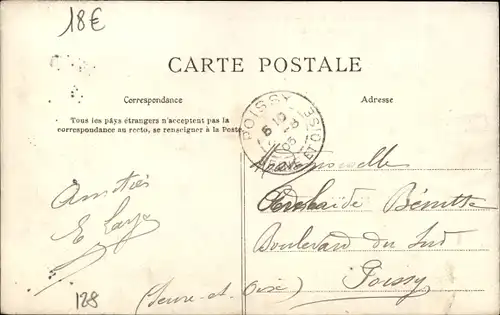 18€
CARTE POSTALE
Correspondance
Adresse
Tous les pays étrangers n'acceptent pas la
correspondance au recto, se renseigner à la Poste.
POISSY
SEINE ET OISE
Amitiés
Mademoiselle
Boulevard du Sud
Poissy
(Seine-et-Oise)
128